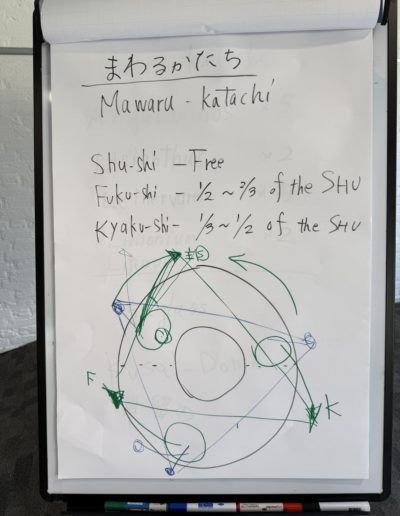 まわるかたち
Mawaru - Katachi
Shu-shi - Free
Fuku-shi - 1/2 ~ 2/3 of the SHU
Kyaku-shi - 1/3 ~ 1/2 of the SHU
F
K